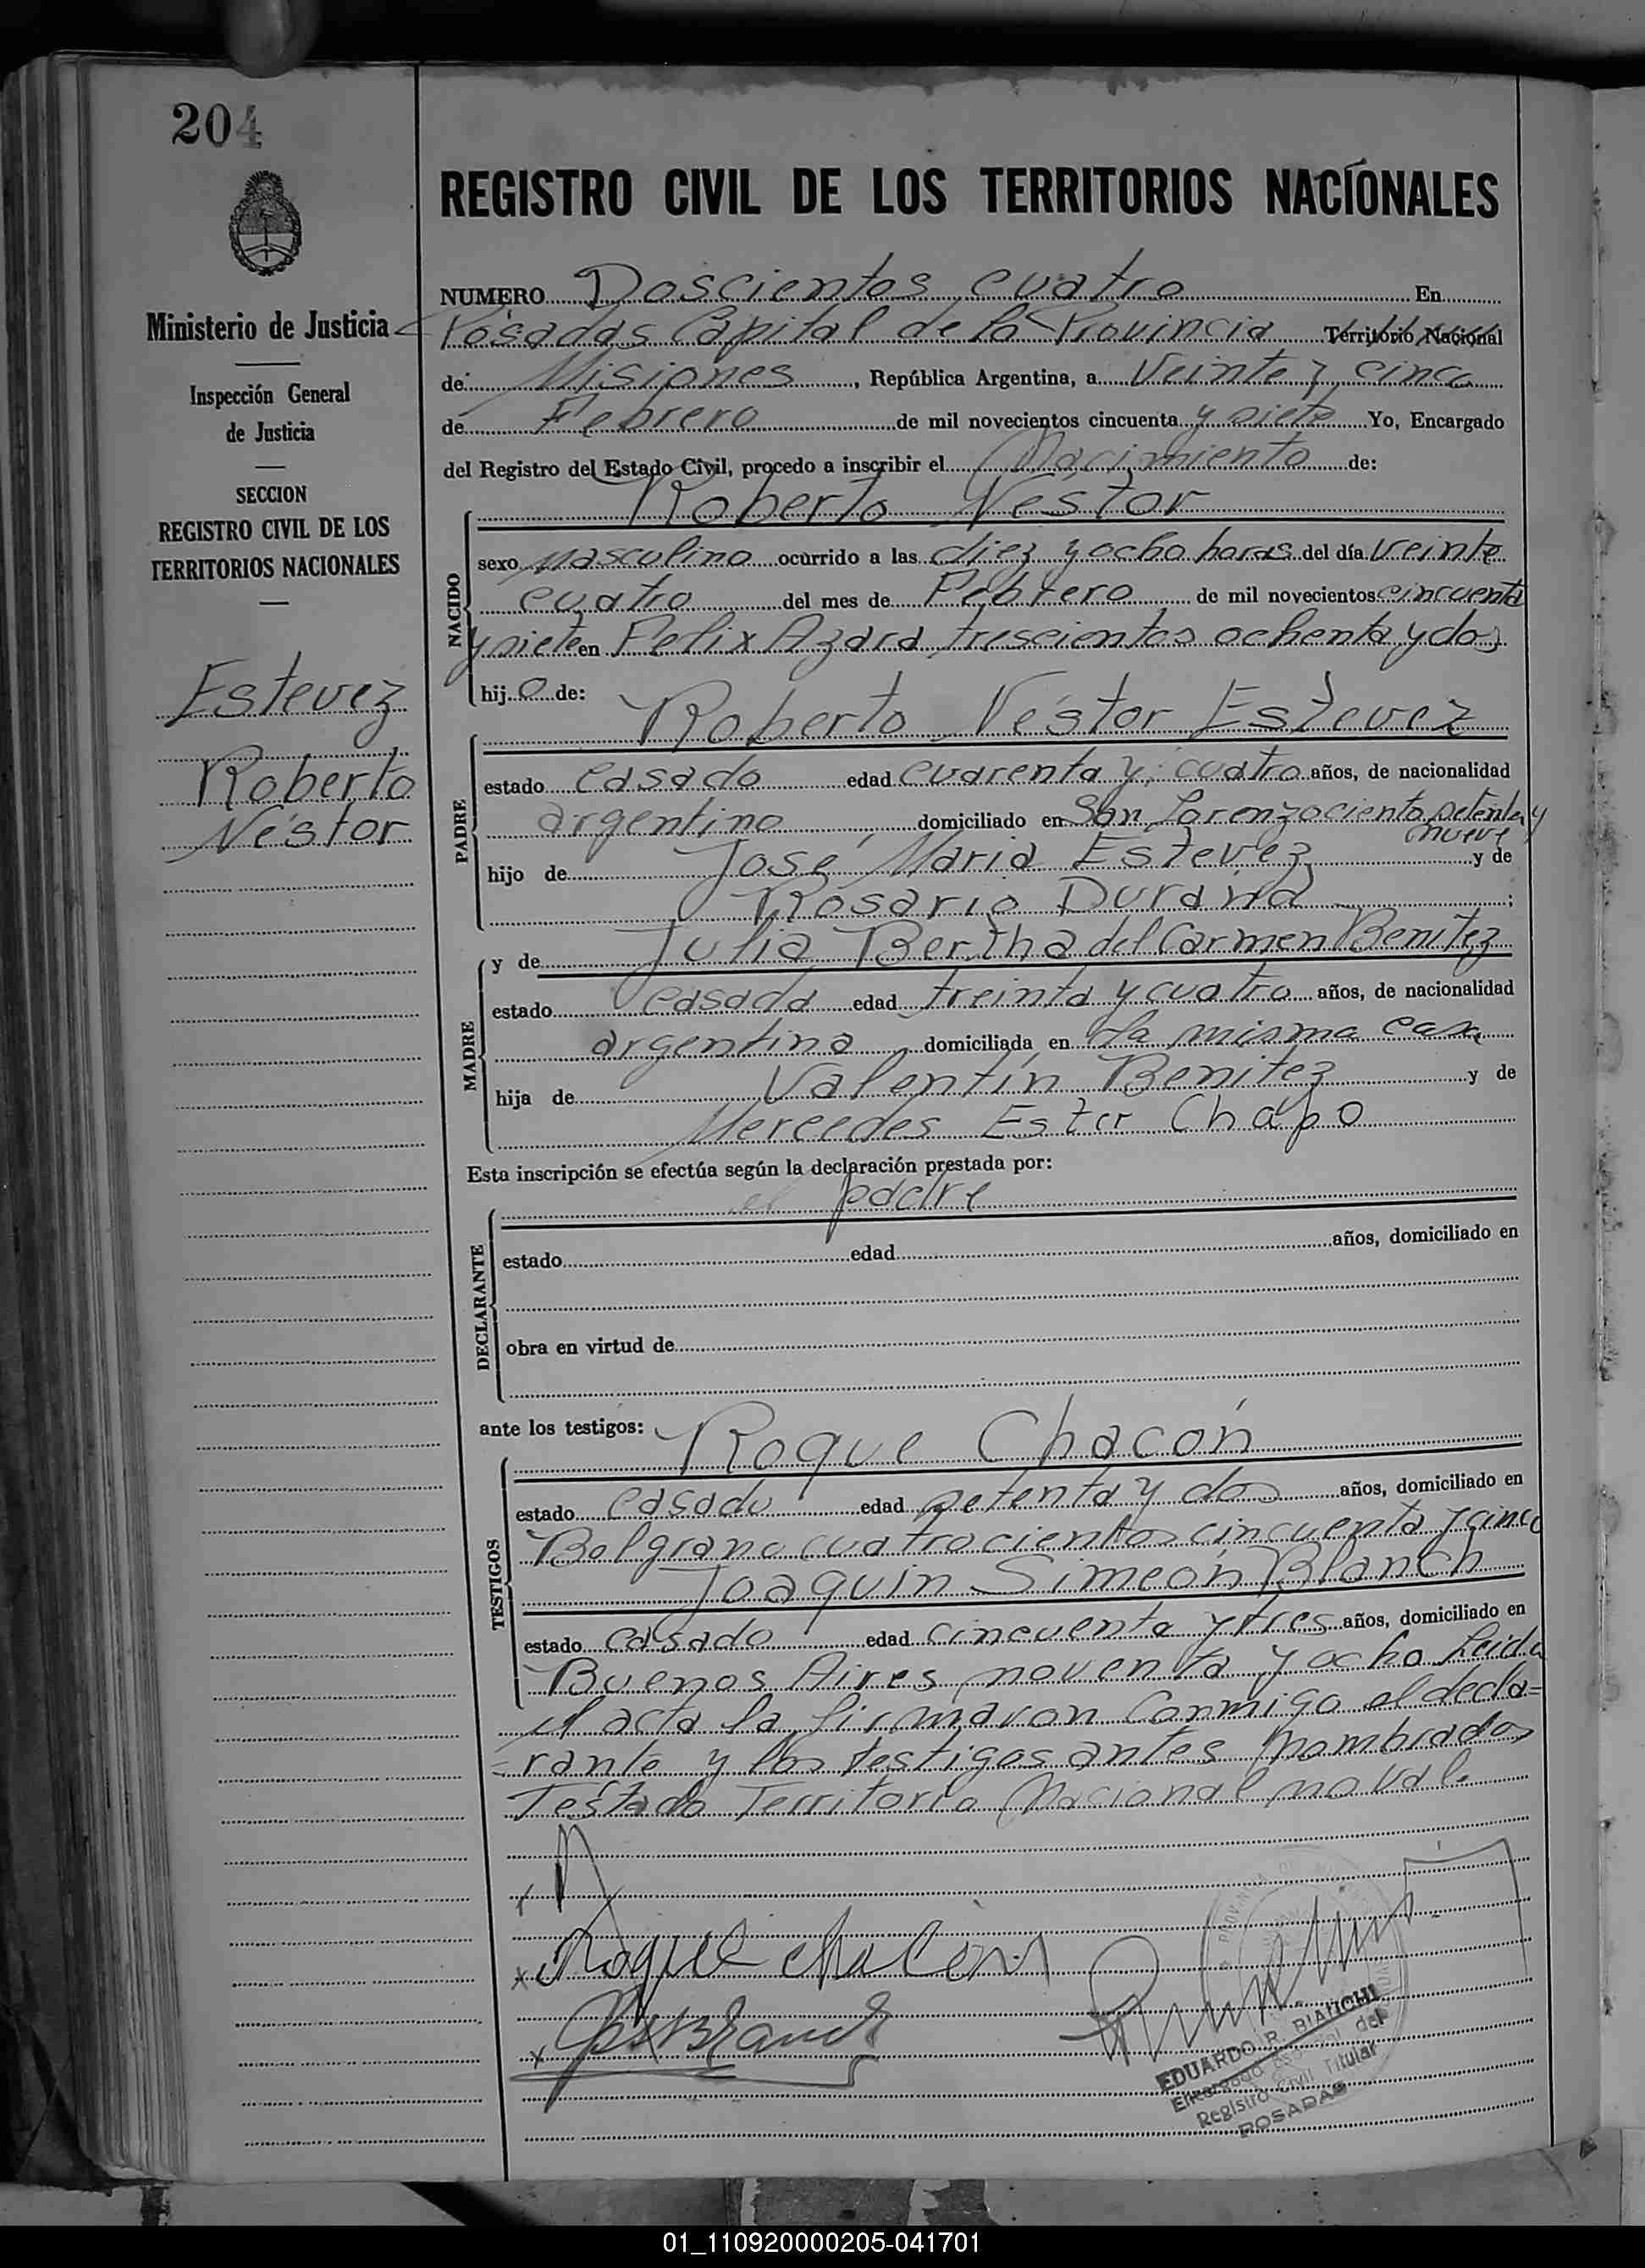 204
Ministerio de Justicia
Inspección General
de Justicia
SECCION
REGISTRO CIVIL DE LOS
TERRITORIOS NACIONALES
Estevez
Roberto
Néstor
REGISTRO CIVIL DE LOS TERRITORIOS NACIONALES
NUMERO Doscientos cuatro En
Posadas Capital de la Provincia Territorio Nacional
de Misiones, República Argentina, a Veinte y cinco
de Febrero de mil novecientos cincuenta y siete Yo, Encargado
del Registro del Estado Civil, procedo a inscribir el Nacimiento de:
Roberto Nestor
NACIDO
sexo masculino ocurrido a las diez y ocho horas del día veinte
cuatro del mes de Febrero de mil novecientos cincuenta
y siete en Felix Azara trescientos ochenta y dos
hijo de:
Roberto Néstor Estevez
PADRE
estado casado edad cuarenta y cuatro años, de nacionalidad
argentino domiciliado en San Lorenzo ciento setenta y
nueve
hijo de José María Estevez y de
Rosario Durana;
y de Julia Bertha del Carmen Benitez
MADRE
estado casada edad treinta y cuatro años, de nacionalidad
argentina domiciliada en la misma casa
hija de Valentín Benitez y de
Mercedes Ester Chapo
Esta inscripción se efectúa según la declaración prestada por:
el padre
DECLARANTE
estado edad años, domiciliado en
obra en virtud de
ante los testigos: Roque Chacón
TESTIGOS
estado casado edad setenta y dos años, domiciliado en
Belgrano cuatrocientos cincuenta y cinco
Joaquin Simeón Blanch
estado casado edad cincuenta y tres años, domiciliado en
Buenos Aires noventa y ocho Leida
el acta la firmaron conmigo el decla=
=rante y los testigos antes nombrados
Testado Territorio Nacional no vale
x Roque Chacon
x Blanch
EDUARDO R. BIANCHI
Encargado del
Registro Civil Titular
POSADAS
01_110920000205-041701